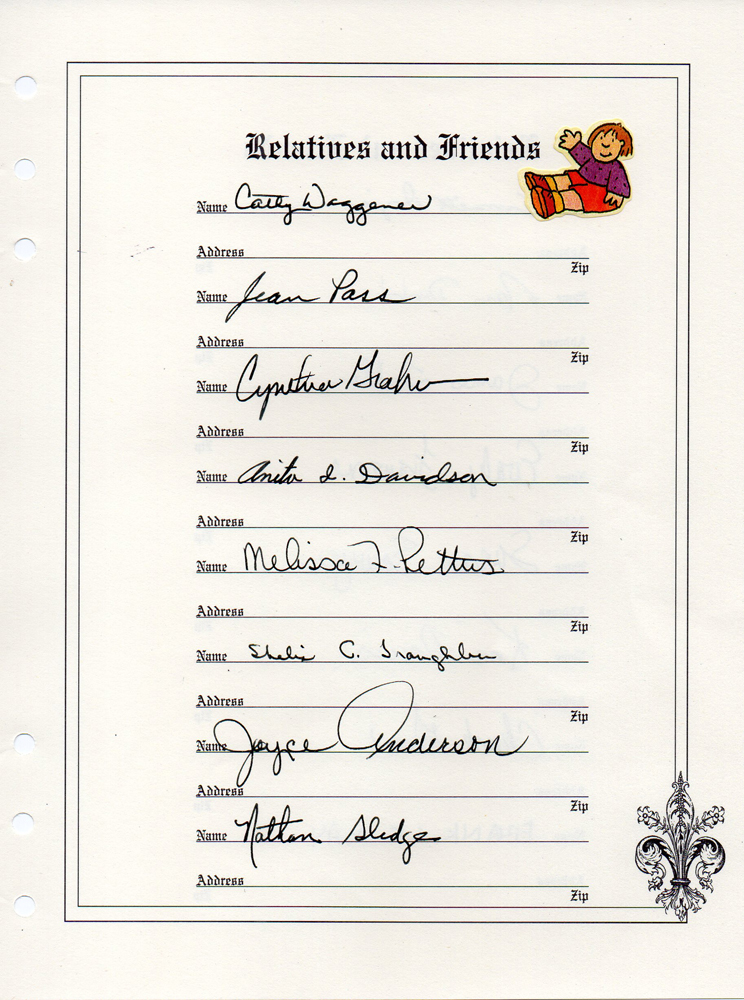 Relatives and Friends
Name Cathy Waggener
Address
Zip
Name Jean Pass
Address
Zip
Name Cynthia Graham
Address
Zip
Name Anita L. Davidson
Address
Zip
Name Melissa F. Pettus
Address
Zip
Name Shelia C. Traughber
Address
Zip
Name Joyce Anderson
Address
Zip
Name Nathan Sledge
Address
Zip